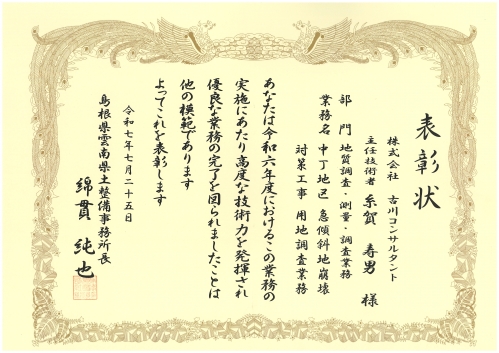 表彰状
株式会社 古川コンサルタント
主任技術者 糸賀 寿男 様
部門 地質調査・測量・調査業務
業務名 中丁地区 急傾斜地崩壊
対策工事 用地調査業務
あなたは令和六年度におけるこの業務の
実施にあたり高度な技術力を発揮され
優良な業務の完了を図られましたことは
他の模範であります
よってこれを表彰します
令和七年七月二十五日
島根県雲南県土整備事務所長
綿貫 純也